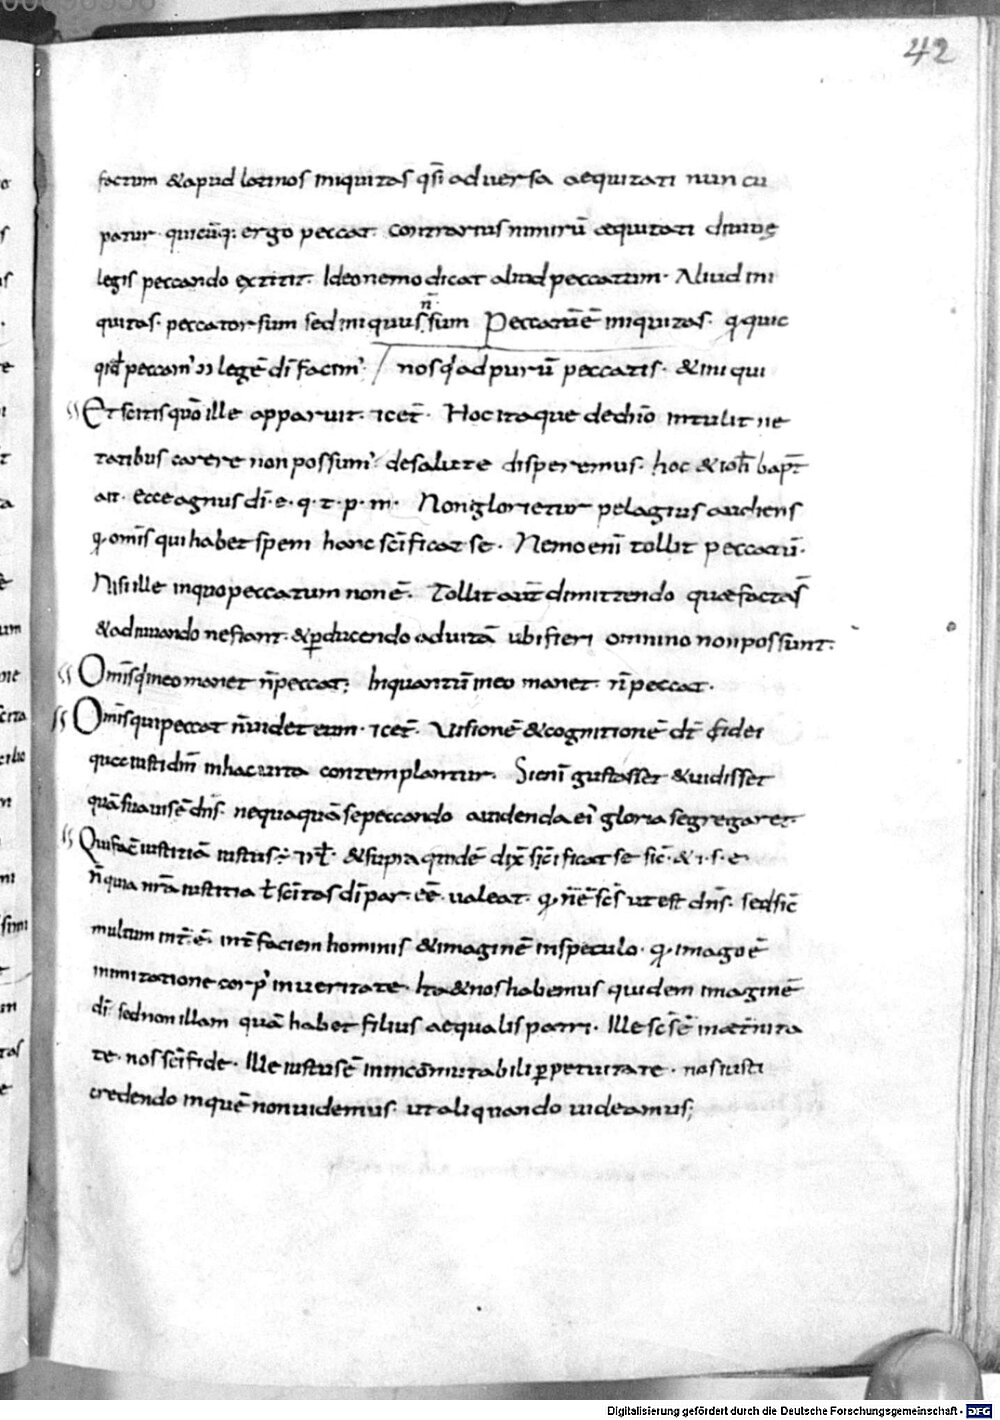 42
factum &apud latinos iniquitas qsī aduersa aequitati nuncu
patur. quicūq: ergo peccat. contrarius nimirū aequitati diuinę
legis peccando extitit. Ideo nemo dicat aliud peccatum. Aliud ini
quitas. peccator sum sed iniquus n̄ sum Peccatū ē iniquitas. q quic
qd peccam' legē dī facim'. / nos qd ad purū peccatis. & iniqui
Et scitis quō ille apparuit. &cet̄. Hoc itaque de dn̄o intulit ne
tatibus carere non possum'. de salute disperemus. hoc & ioh̄ bapt̄
ait. ecce agnus dī. e. q. t. p. m. Non glorietur pelagius audiens
q omīs qui habet spem hanc scīficat se. Nemo enī tollit peccatū.
Nisi ille in quo peccatum non ē. Tollit aut̄ dimittendo quae facta s̄
& adiuuando ne fiant. & ꝑducendo ad uitā ubi fieri omnino non possunt.
Omīs q in eo manet n̄ peccat; Inquantū in eo manet. n̄ peccat.
Omīs qui peccat n̄ uidet eum. &cet̄. Visionē & cognitionē dt̄ fidei
quae iusti dm̄ in hac uita contemplantur. Si enī gustasset & uidisset
quā suauis ē dn̄s. nequaquā se peccando audenda ei' gloria segregaret.
Qui fac̄ iustitiā iustus ē & supra quidē dix̄ scīficat se sic̄. & i. s. e.
n̄ quia nr̄a iustitia ł scītas dī par. eē. ualeat. q nē scs ut est dn̄s. sed sic̄
multum int̄. ē. int̄ faciem hominis & imaginē in speculo. q imago ē
in imitatione corp' in ueritate. Ita & nos habemus quidem imaginē
dī sed non illam quā habet filius aequalis patri. Ille scs ē in aet̄nita
te. nos scī fide. Ille iustus ē in incōmutabili ꝑpetuitate. nos iusti
credendo in quē non uidemus. ut aliquando uideamus;
Digitalisierung gefördert durch die Deutsche Forschungsgemeinschaft - DFG